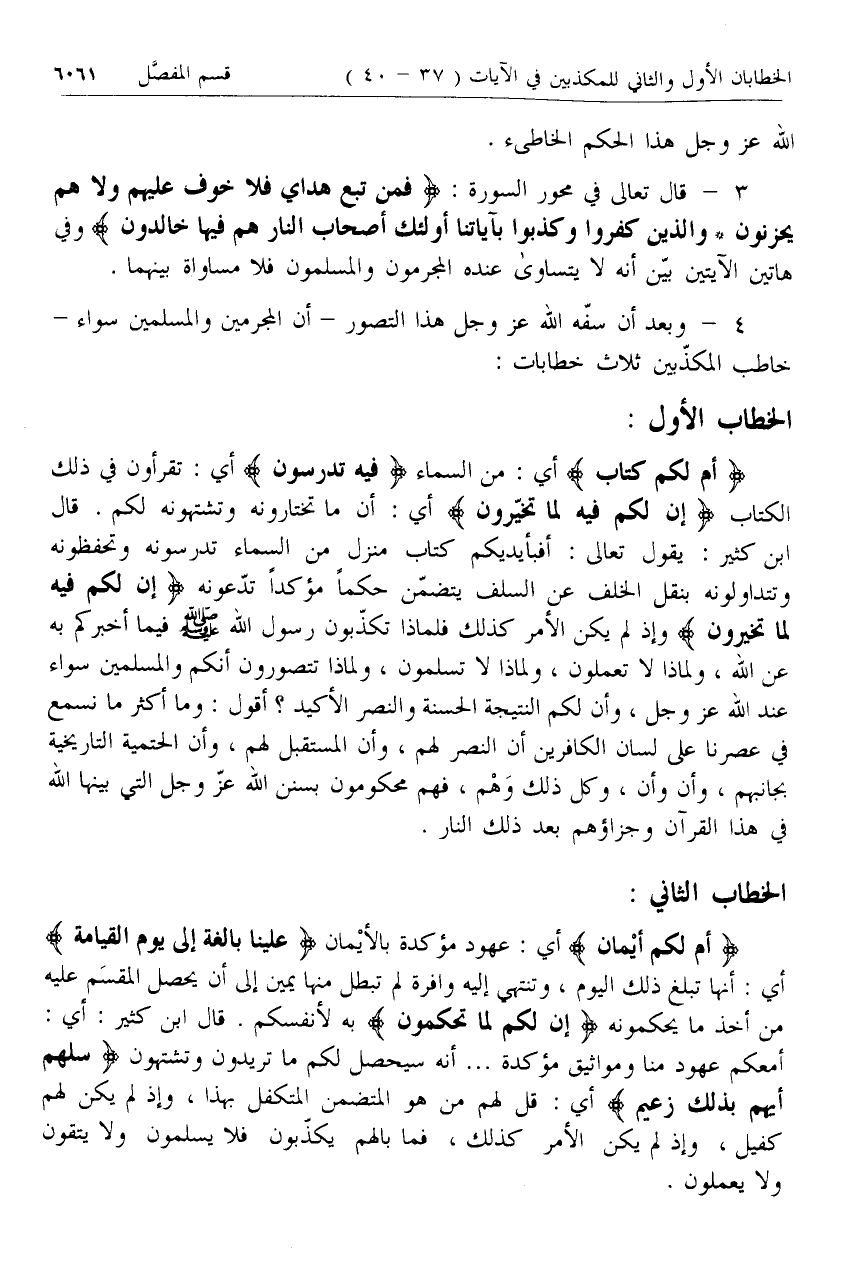 الخطابان الأول والثاني للمكذبين في الآيات ( ٣٧ – ٤٠ ) قسم المفصَّل ٦٠٦١
الله عز وجل هذا الحكم الخاطىء .
٣ – قال تعالى في محور السورة : ﴿ فمن تبع هداي فلا خوف عليهم ولا هم
يحزنون * والذين كفروا وكذبوا بآياتنا أولئك أصحاب النار هم فيها خالدون ﴾ وفي
هاتين الآيتين بيّن أنه لا يتساوىٰ عنده المجرمون والمسلمون فلا مساواة بينهما .
٤ – وبعد أن سفّه الله عز وجل هذا التصور – أن المجرمين والمسلمين سواء –
خاطب المكذّبين ثلاث خطابات :
الخطاب الأول :
﴿ أم لكم كتاب ﴾ أي : من السماء ﴿ فيه تدرسون ﴾ أي : تقرأون في ذلك
الكتاب ﴿ إن لكم فيه لما تخيّرون ﴾ أي : أن ما تختارونه وتشتهونه لكم . قال
ابن كثير : يقول تعالى : أفبأيديكم كتاب منزل من السماء تدرسونه وتحفظونه
وتتداولونه بنقل الخلف عن السلف يتضمّن حكماً مؤكداً تدّعونه ﴿ إن لكم فيه
لما تخيرون ﴾ وإذ لم يكن الأمر كذلك فلماذا تكذّبون رسول الله ﷺ فيما أخبركم به
عن الله ، ولماذا لا تعملون ، ولماذا لا تسلمون ، ولماذا تتصورون أنكم والمسلمين سواء
عند الله عز وجل ، وأن لكم النتيجة الحسنة والنصر الأكيد ؟ أقول : وما أكثر ما نسمع
في عصرنا على لسان الكافرين أن النصر لهم ، وأن المستقبل لهم ، وأن الحتمية التاريخية
بجانبهم ، وأن وأن ، وكل ذلك وَهْم ، فهم محكومون بسنن الله عزّ وجل التي بينها الله
في هذا القرآن وجزاؤهم بعد ذلك النار .
الخطاب الثاني :
﴿ أم لكم أيْمان ﴾ أي : عهود مؤكدة بالأيْمان ﴿ علينا بالغة إلى يوم القيامة ﴾
أي : أنها تبلغ ذلك اليوم ، وتنتهي إليه وافرة لم تبطل منها يمين إلى أن يحصل المقسَم عليه
من أخذ ما يحكمونه ﴿ إن لكم لما تحكمون ﴾ به لأنفسكم . قال ابن كثير : أي :
أمعكم عهود منا ومواثيق مؤكدة ... أنه سيحصل لكم ما تريدون وتشتهون ﴿ سلهم
أيهم بذلك زعيم ﴾ أي : قل لهم من هو المتضمن المتكفل بهذا ، وإذ لم يكن لهم
كفيل ، وإذ لم يكن الأمر كذلك ، فما بالهم يكذّبون فلا يسلمون ولا يتقون
ولا يعملون .